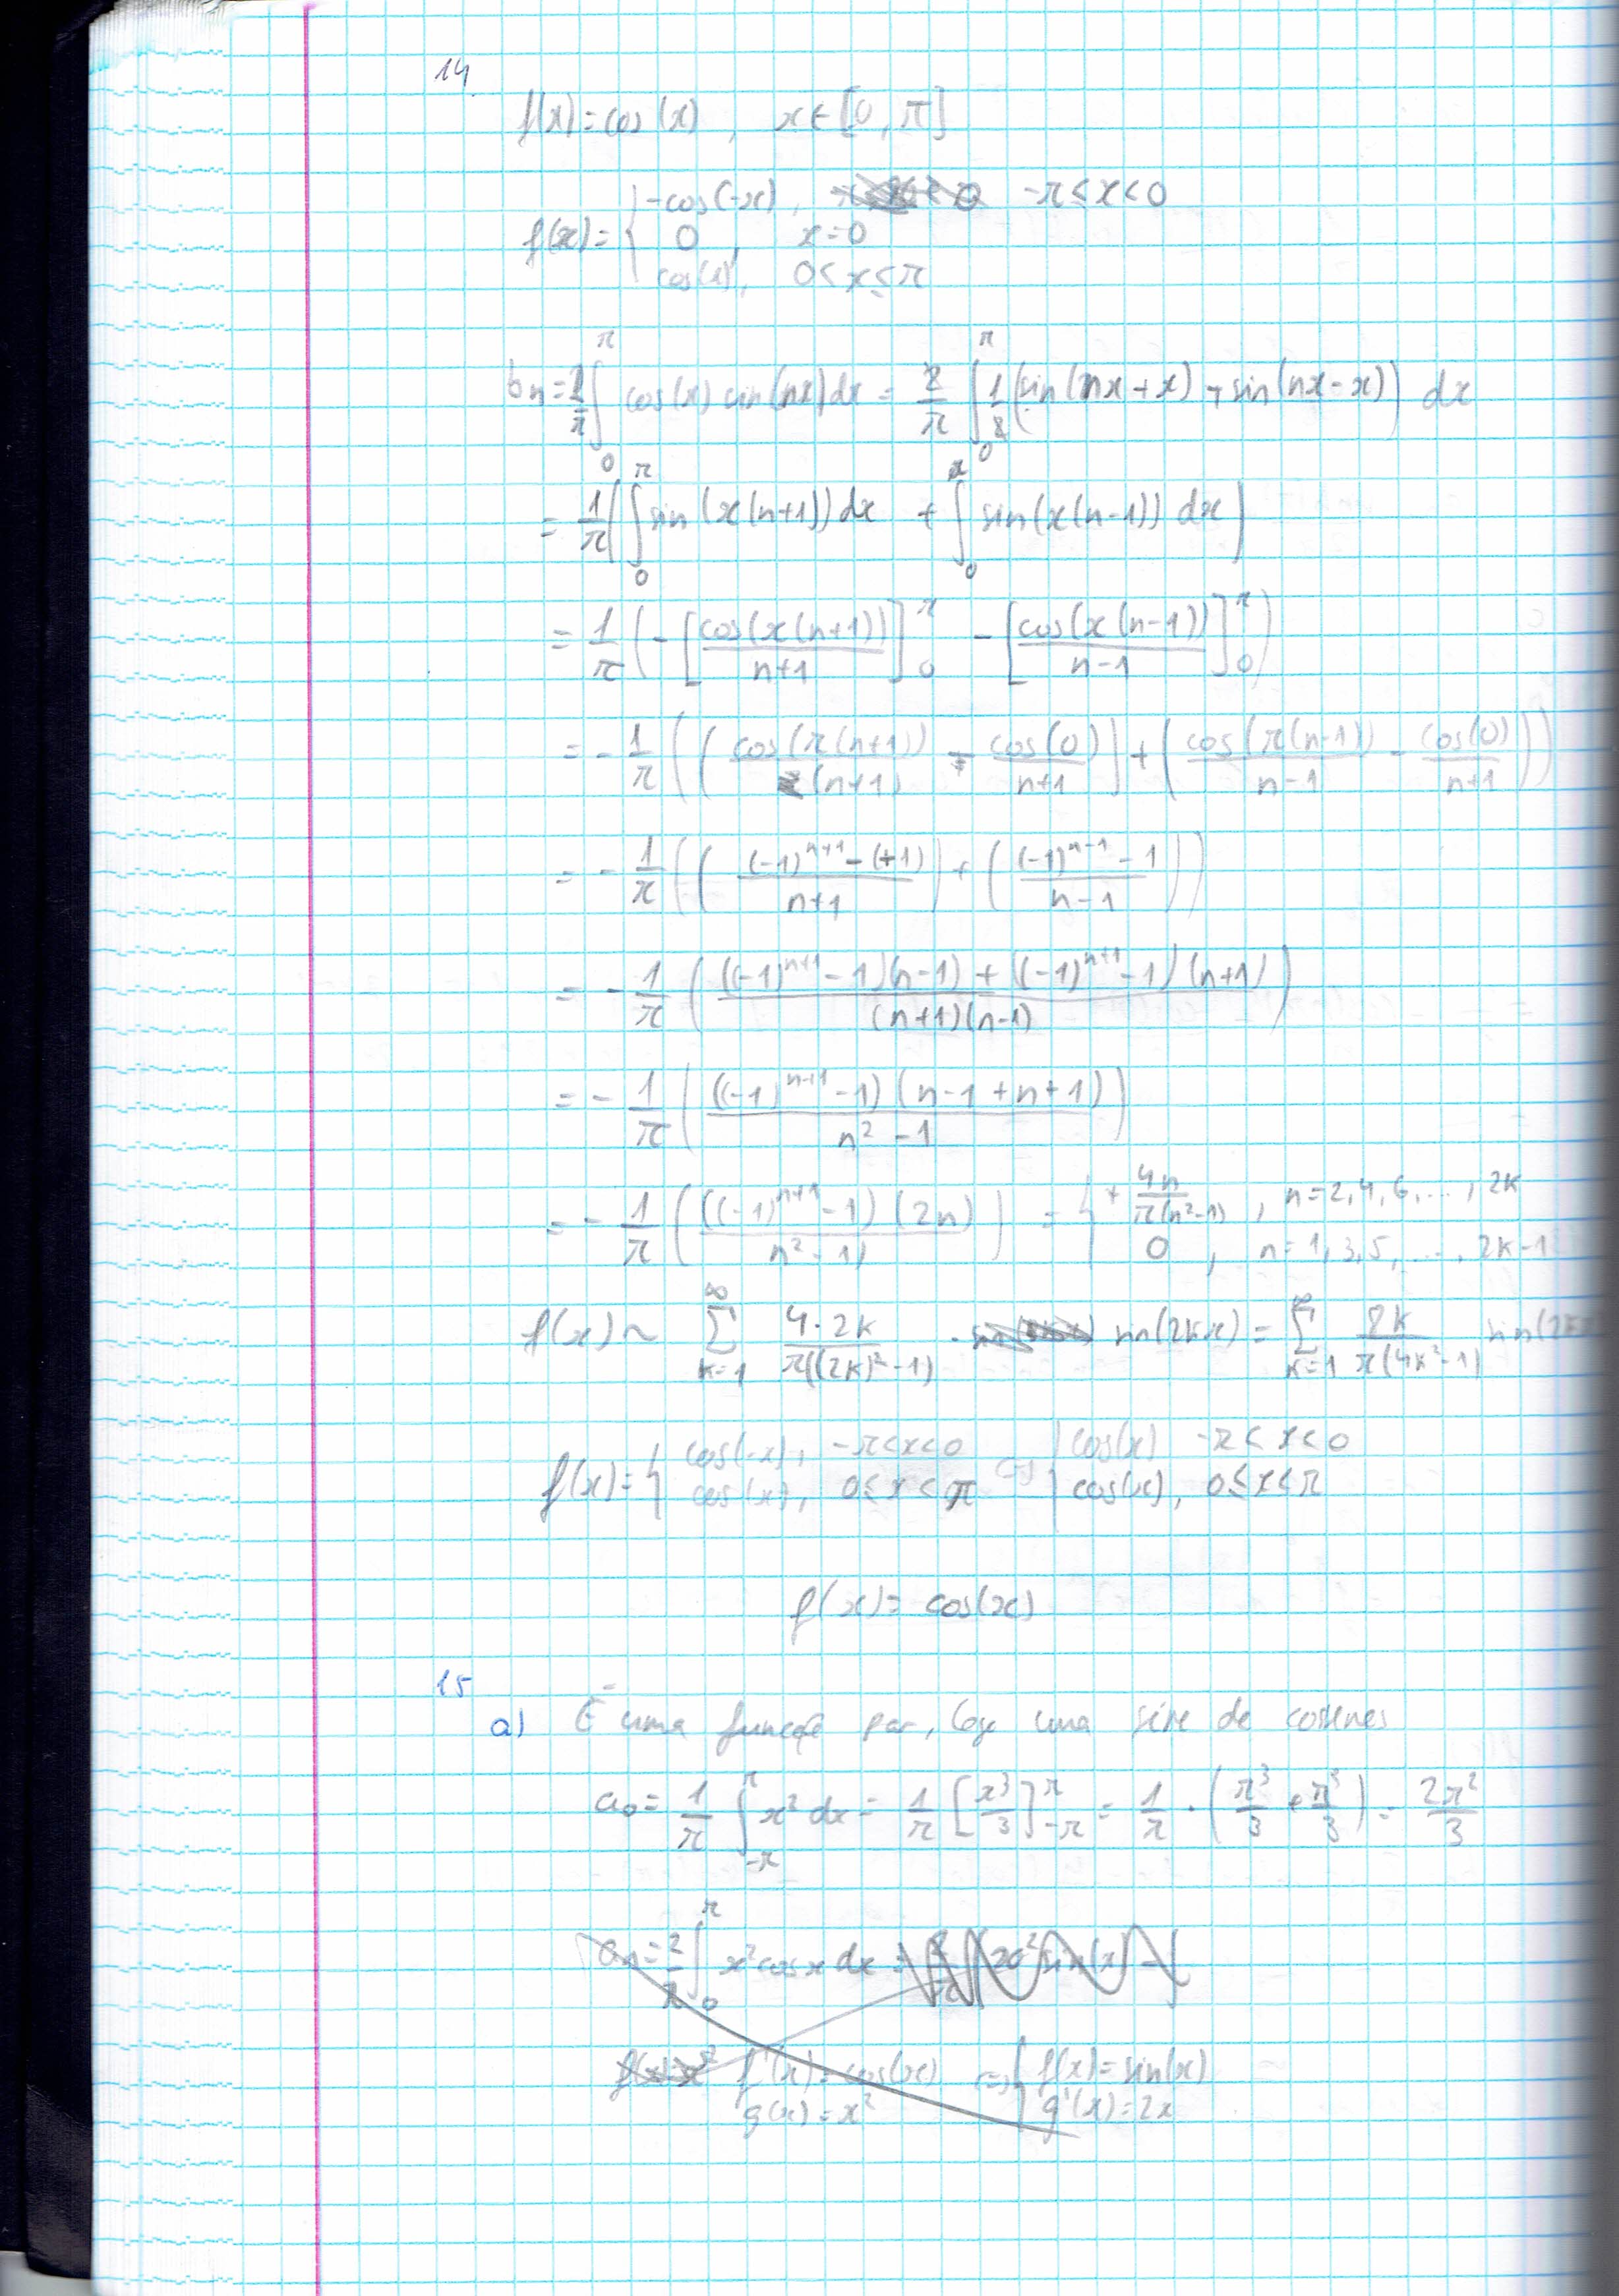 14
f(x)=cos(x) , x∈[0,π]
f(x)= { -cos(-x), -π≤x<0
0 , x=0
cos(x), 0<x≤π
bn = 2/π ∫₀^π cos(x) sin(nx) dx = 2/π ∫₀^π 1/2 (sin(nx+x) + sin(nx-x)) dx
= 1/π ( ∫₀^π sin(x(n+1)) dx + ∫₀^π sin(x(n-1)) dx )
= 1/π ( - [ cos(x(n+1)) / n+1 ]₀^π - [ cos(x(n-1)) / n-1 ]₀^π )
= - 1/π ( ( cos(π(n+1)) / (n+1) - cos(0) / n+1 ) + ( cos(π(n-1)) / n-1 - cos(0) / n+1 ) )
= - 1/π ( ( (-1)^{n+1} - (+1) / n+1 ) + ( (-1)^{n-1} - 1 / n-1 ) )
= - 1/π ( ((-1)^{n+1} -1)(n-1) + ((-1)^{n+1} -1)(n+1) / (n+1)(n-1) )
= - 1/π ( ((-1)^{n+1} -1) (n-1+n+1) / n² -1 )
= - 1/π ( ((-1)^{n+1} -1) (2n) / n² -1 ) = { + 4n / π(n²-1) , n=2,4,6,..., 2k
0 , n=1,3,5,..., 2k-1
f(x) ~ ∑_{k=1}^∞ 4·2k / π((2k)²-1) · sin(2kx) = ∑_{k=1}^∞ 8k / π(4k²-1) sin(2kx)
f(x)= { cos(-x), -π<x<0 ⇔ { cos(x) -π<x<0
cos(x), 0≤x<π cos(x), 0≤x<π
f(x)= cos(x)
15
a) É uma função par, logo uma série de cosenos
a₀ = 1/π ∫_{-π}^π x² dx = 1/π [ x³/3 ]_{-π}^π = 1/π · ( π³/3 + π³/3 ) = 2π²/3
an = 2/π ∫₀^π x² cos x dx =
f'(x) = cos(x) ⇒ { f(x)=sin(x)
g(x) = x² g'(x)=2x